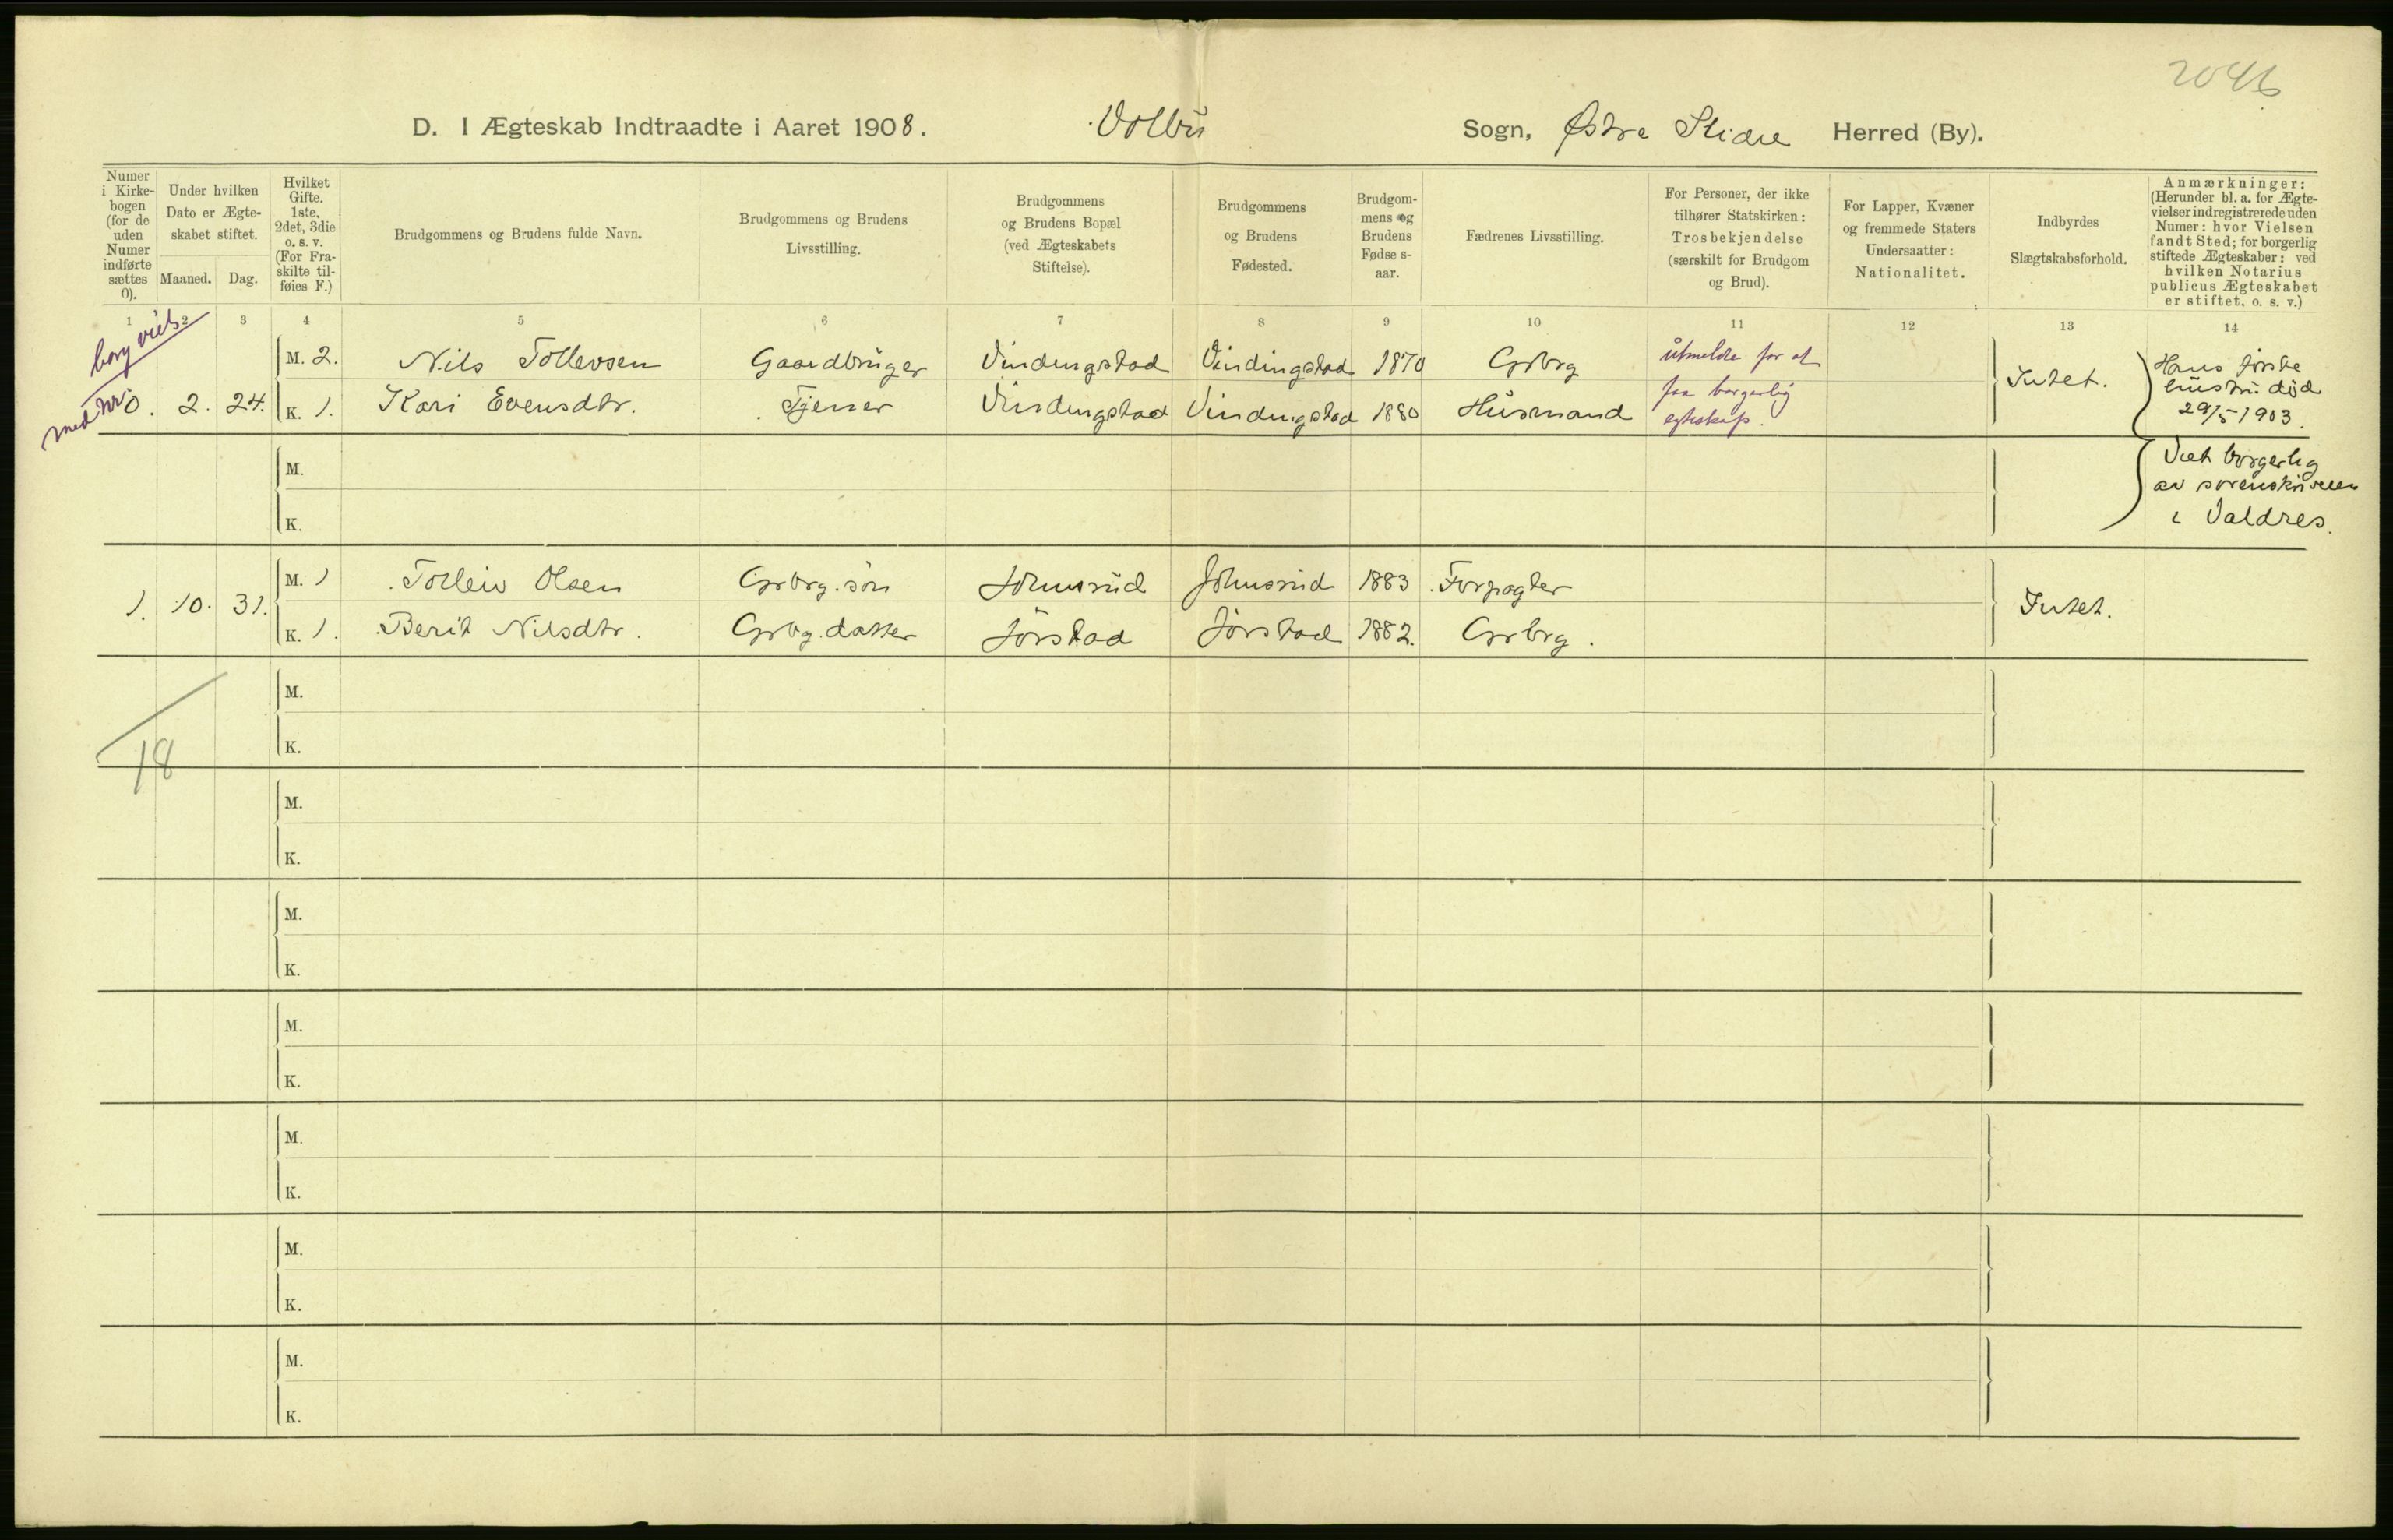 2046
D. I Ægteskab Indtraadte i Aaret 1908. Volbu Sogn, Østre Slidre Herred (By).
Numer i Kirkebogen (for de uden Numer indførte sættes 0).
Under hvilken Dato er Ægteskabet stiftet.
Maaned. Dag.
Hvilket Gifte. 1ste, 2det, 3die o. s. v. (For Fraskilte tilføies F.)
Brudgommens og Brudens fulde Navn.
Brudgommens og Brudens Livsstilling.
Brudgommens og Brudens Bopæl (ved Ægteskabets Stiftelse).
Brudgommens og Brudens Fødested.
Brudgommens og Brudens Fødselsaar.
Fædrenes Livsstilling.
For Personer, der ikke tilhører Statskirken: Trosbekjendelse (særskilt for Brudgom og Brud).
For Lapper, Kvæner og fremmede Staters Undersaatter: Nationalitet.
Indbyrdes Slægtskabsforhold.
Anmærkninger: (Herunder bl. a. for Ægtevielser indregistrerede uden Numer: hvor Vielsen fandt Sted; for borgerlig stiftede Ægteskaber: ved hvilken Notarius publicus Ægteskabet er stiftet. o. s. v.)
1 2 3 4 5 6 7 8 9 10 11 12 13 14
borg viet
med Nr
M. 2. Nils Tollevsen Gaardbruger Vindingstad Vindingstad 1870 Grbrg utmeldte for at
0. 2. 24. K. 1. Kari Evensdtr. Tjener Vindingstad Vindingstad 1880 Husmand faa borgerlig
egteskap.
Intet.
Hans første
hustru død
29/5 1903.
M.
K.
Viet borgerlig
av sorenskriveren
i Valdres.
M. 1 Tolleiv Olsen Grbrg. søn 1883 Forpagter
1. 10. 31. Intet.
K. 1. Berit Nilsdtr. Grbg. datter Jørstad Jørstad 1882. Grbrg.
M.
K.
18
M.
K.
M.
K.
M.
K.
M.
K.
M.
K.
M.
K.